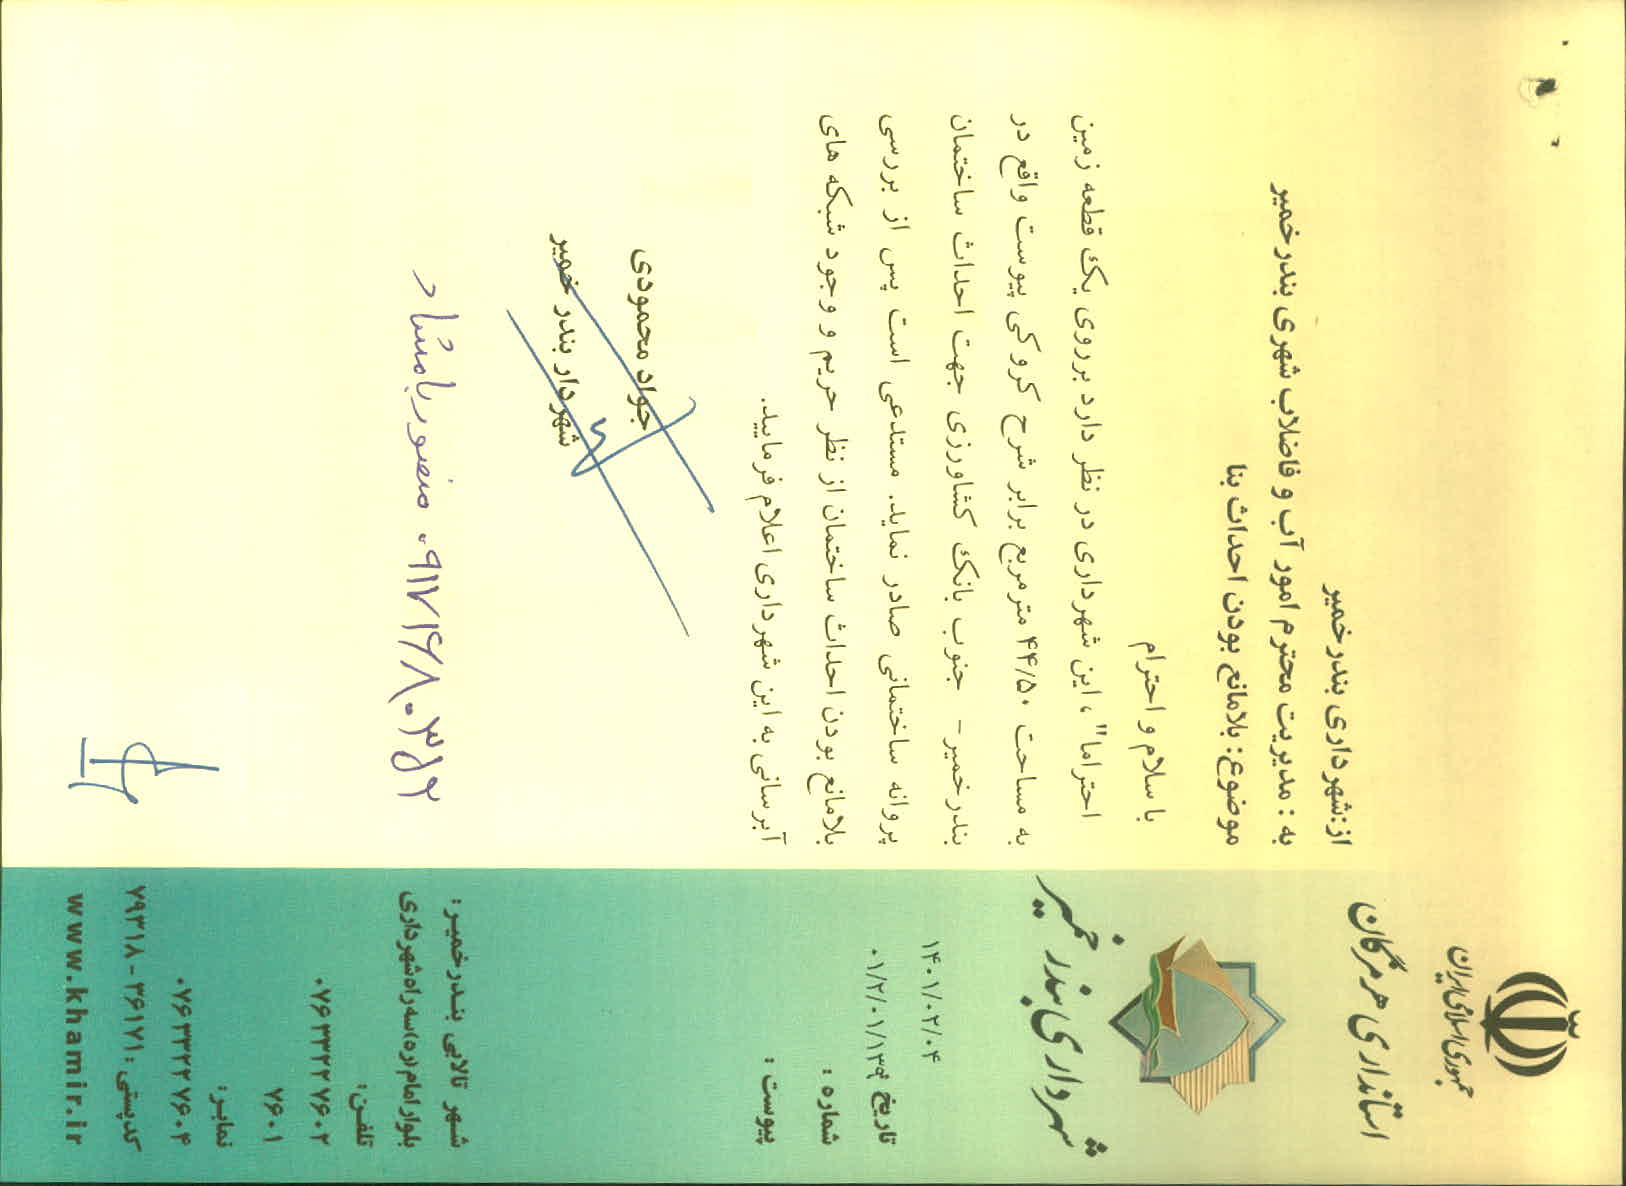 جمهوری اسلامی ایران
استانداری هرمزگان
شهرداری بندر خمیر
۱۴۰۱/۰۲/۰۴
تاریخ
۰۱/۲/۰۱/۱۳۹
شماره :
پیوست :
از:شهرداری بندرخمیر
به : مدیریت محترم امور آب و فاضلاب شهری بندرخمیر
موضوع: بلامانع بودن احداث بنا
با سلام و احترام
احتراما" ، این شهرداری در نظر دارد برروی یک قطعه زمین
به مساحت ۴۴/۵۰ مترمربع برابر شرح کروکی پیوست واقع در
بندرخمیر- جنوب بانک کشاورزی جهت احداث ساختمان
پروانه ساختمانی صادر نماید. مستدعی است پس از بررسی
بلامانع بودن احداث ساختمان از نظر حریم و وجود شبکه های
آبرسانی به این شهرداری اعلام فرمایید.
جواد محمودی
شهردار بندر خمیر
منصور بامشاد
شهر تالابی بندرخمیر :
بلوار امام(ره)سه راه شهرداری
تلفن:
۰۷۶۳۳۲۲۷۶۰۲
۷۶۰۱
نمابر:
۰۷۶۳۳۲۲۷۶۰۴
کدپستی : ۳۶۱۷۱ - ۷۹۳۱۸
www.khamir.ir